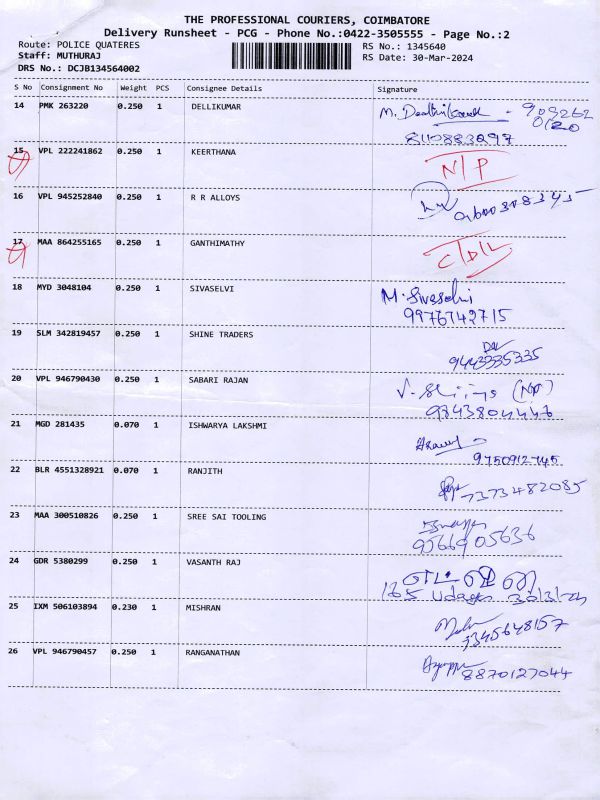 THE PROFESSIONAL COURIERS, COIMBATORE
Delivery Runsheet - PCG - Phone No.:0422-3505555 - Page No.:2
Route: POLICE QUATERES RS No.: 1345640
Staff: MUTHURAJ RS Date: 30-Mar-2024
DRS No.: DCJB134564002
S No Consignment No Weight PCS Consignee Details Signature
14 PMK 263220 0.250 1 DELLIKUMAR M.
8110883297
15 VPL 222241862 0.250 1 KEERTHANA N/P
16 VPL 945252840 0.250 1 R R ALLOYS
17 MAA 864255165 0.250 1 GANTHIMATHY C/D/L
18 MYD 3048104 0.250 1 SIVASELVI M. Sivaselvi
9976742715
19 SLM 342819457 0.250 1 SHINE TRADERS
9443335335
20 VPL 946790430 0.250 1 SABARI RAJAN
9343804446
21 MGD 281435 0.070 1 ISHWARYA LAKSHMI
9750912745
22 BLR 4551328921 0.070 1 RANJITH 7373482085
23 MAA 300510826 0.250 1 SREE SAI TOOLING
9566905636
24 GDR 5380299 0.250 1 VASANTH RAJ
30/3/24
25 IXM 506103894 0.230 1 MISHRAN
26 VPL 946790457 0.250 1 RANGANATHAN 8870127044